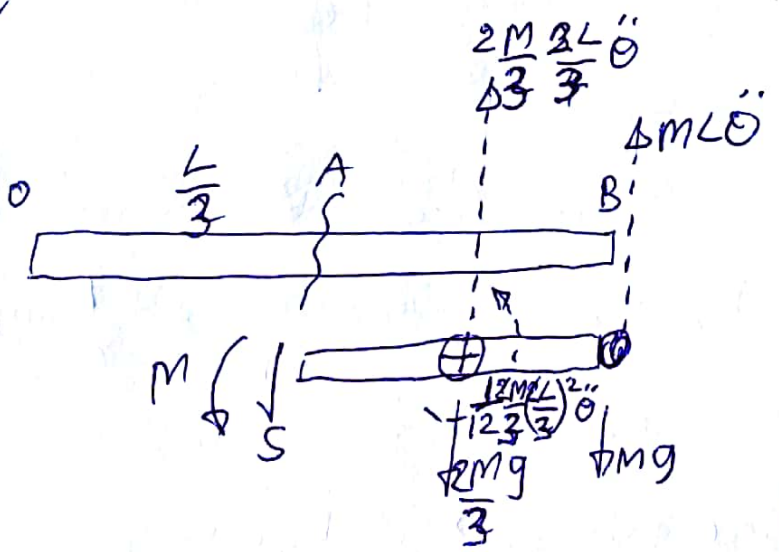 2M/3 2L/3 θ̈
MLθ̈
O
L/3
A
B
M
S
1/12 2M/3 (2L/3)² θ̈
2Mg/3
Mg